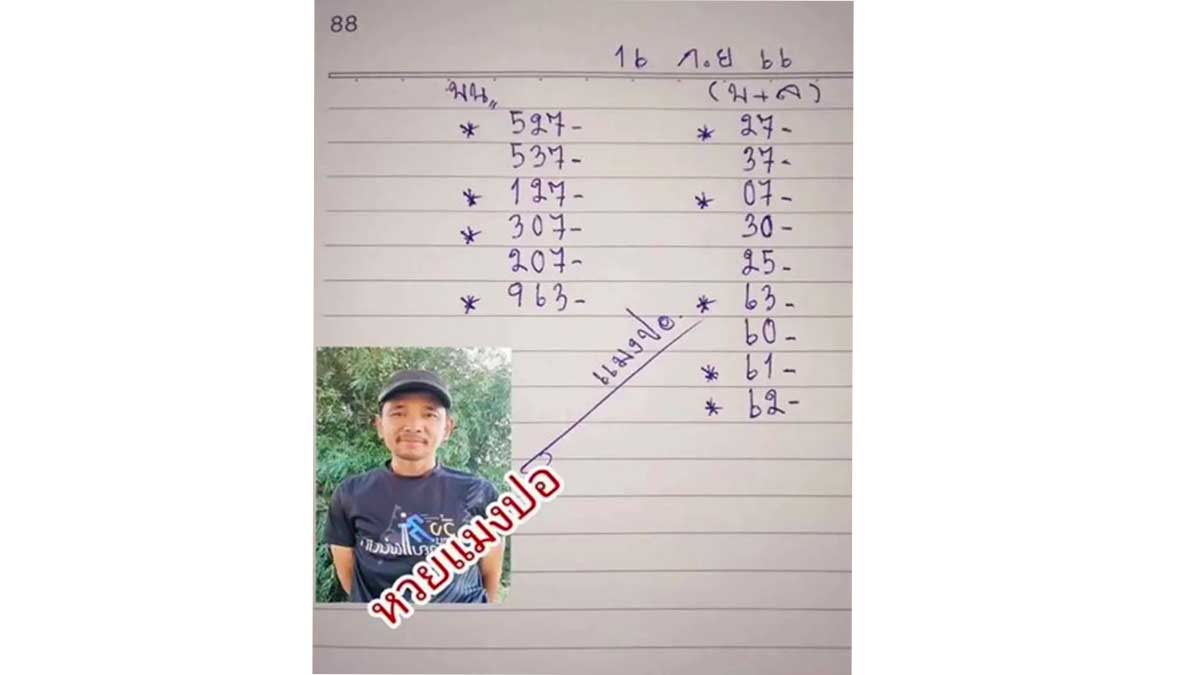 88
16 ก.ย 66
บน,, (บ+ล)
* 527- * 27-
537- 37-
* 127- * 07-
* 307- 30-
207- 25-
* 963- * 63-
60-
* 61-
* 62-
แมงปอ.
หวยแมงปอ